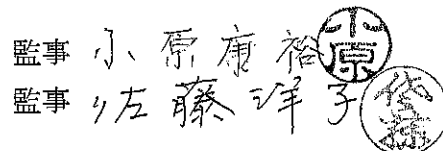 監事 小原康裕 小原
監事 佐藤洋子 佐藤